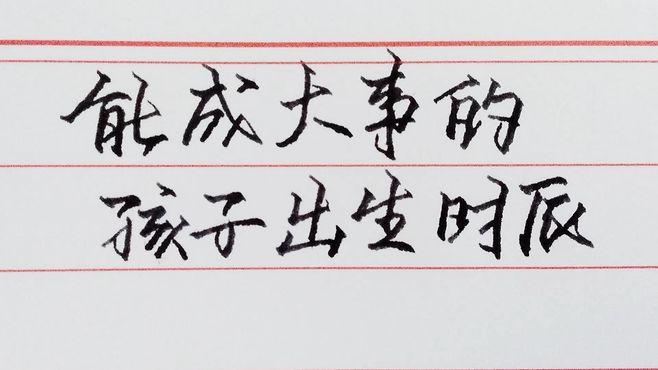 能成大事的
孩子出生时辰